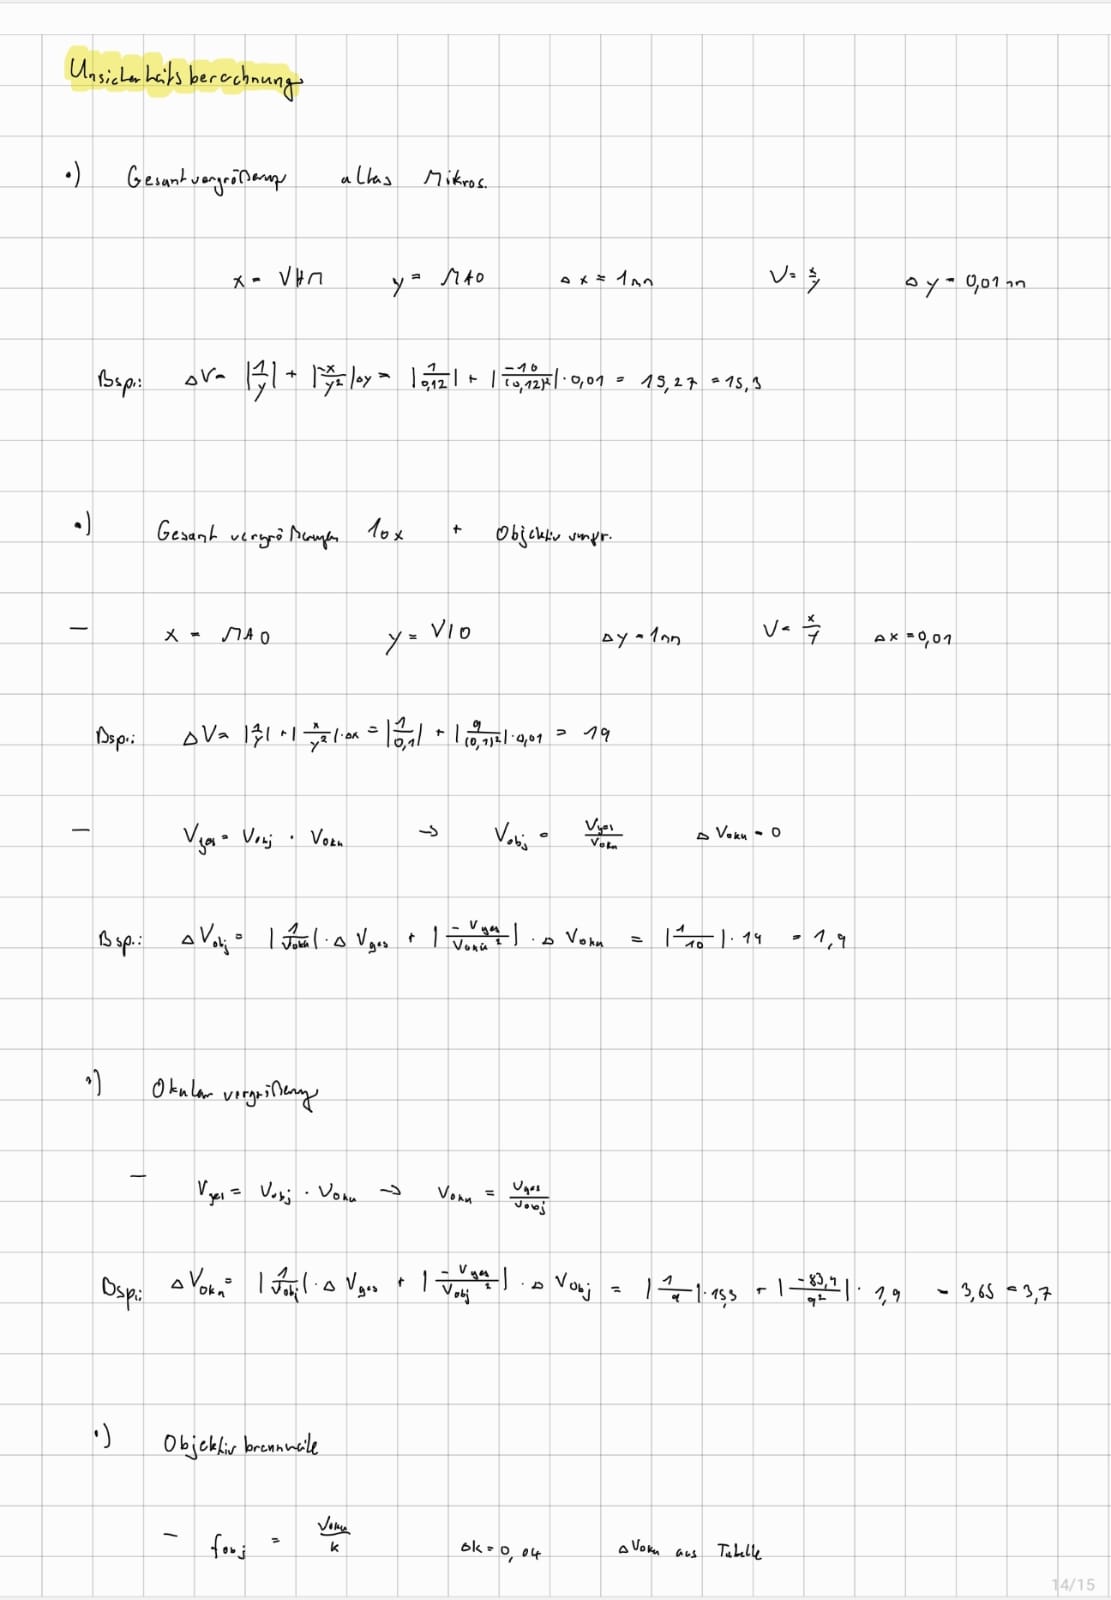 Unsicherheitsberechnung
•) Gesamtvergrößerung altes Mikros.
x = VHM y = MAO Δx = 1mm V = x/y Δy = 0,01mm
Bsp.: ΔV = |1/y| + |-x/y²|Δy = |1/0,12| + |-10/(0,12)²| · 0,01 = 15,27 = 15,3
•) Gesamtvergrößerung 10x + Objektivvergr.
– x = MAO y = VIO Δy = 1mm V = x/y Δx = 0,01
Bsp.: ΔV = |1/y| + |x/y²| · Δx = |1/0,1| + |9/(0,1)²| · 0,01 = 19
– Vges = Vobj · Voku → Vobj = Vges/Voku ΔVoku = 0
Bsp.: ΔVobj = |1/Voku| · ΔVges + |-Vges/Voku²| · ΔVoku = |1/10| · 19 = 1,9
•) Okularvergrößerung
– Vges = Vobj · Voku → Voku = Vges/Vobj
Bsp.: ΔVoku = |1/Vobj| · ΔVges + |-Vges/Vobj²| · ΔVobj = |1/9| · 15,3 + |-83,4/9²| · 1,9 = 3,65 = 3,7
•) Objektivbrennweite
– fobj = Voku/k Δk = 0,04 ΔVoku aus Tabelle
14/15